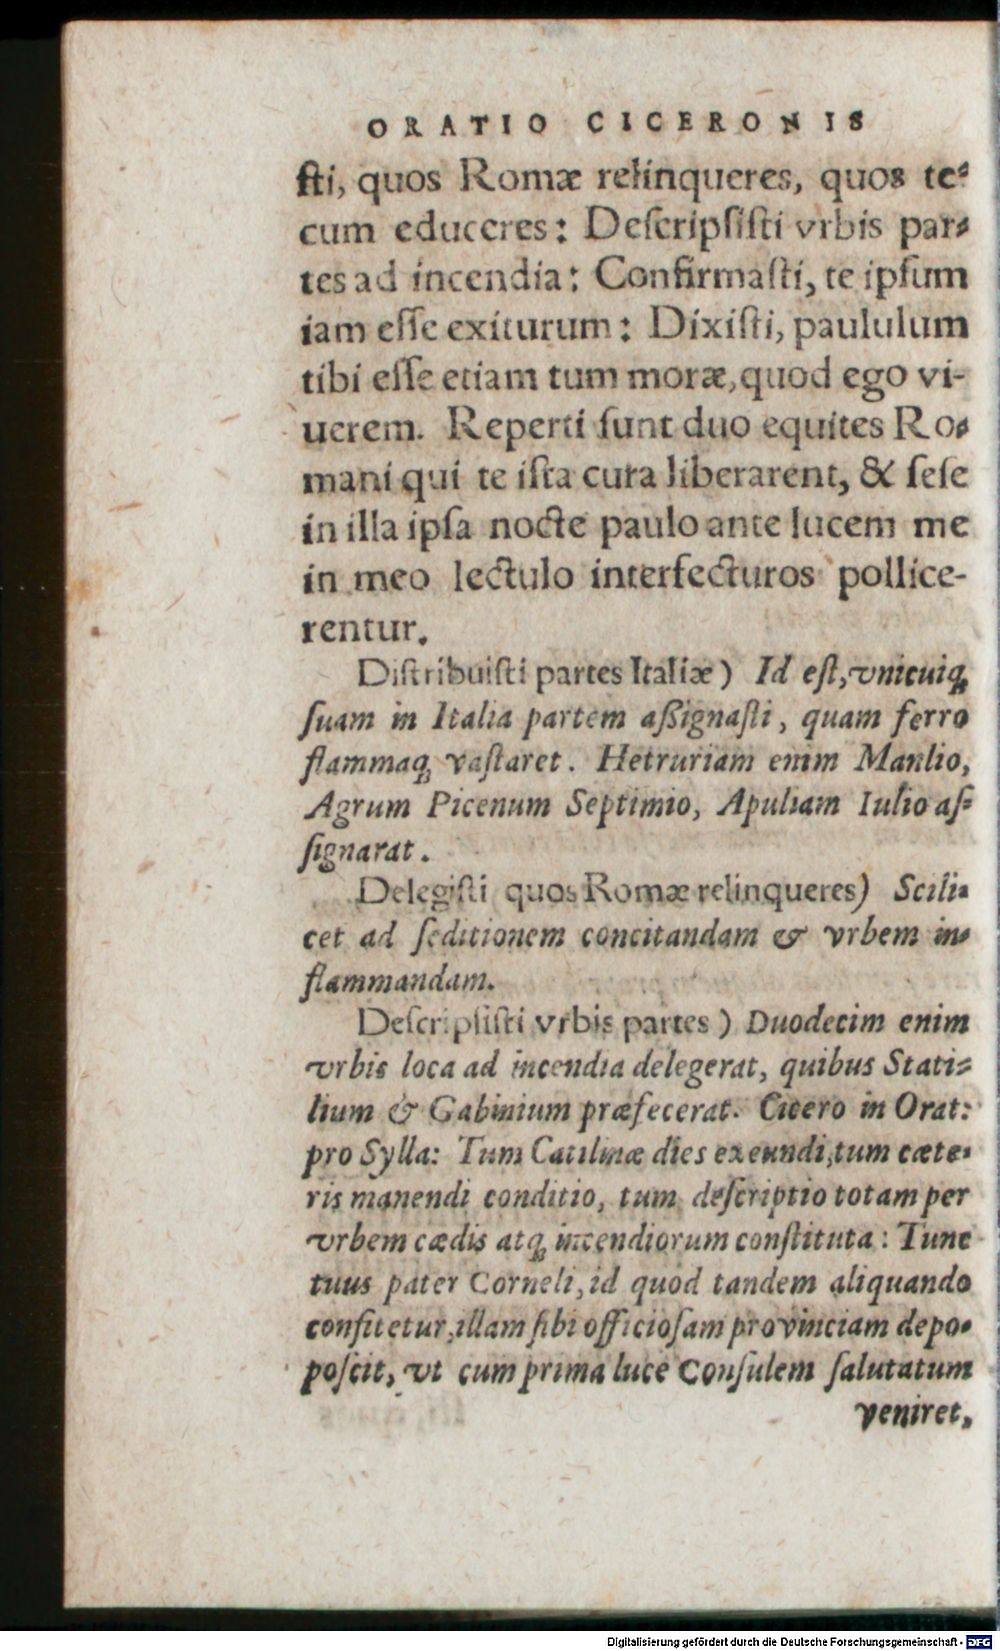 ORATIO CICERONIS
ſti, quos Romæ relinqueres, quos te⸗
cum educeres: Deſcripſiſti vrbis par⸗
tes ad incendia: Confirmaſti, te ipſum
iam eſſe exiturum: Dixiſti, paululum
tibi eſſe etiam tum moræ, quod ego vi-
uerem. Reperti ſunt duo equites Ro⸗
mani qui te iſta cura liberarent, & ſeſe
in illa ipſa nocte paulo ante lucem me
in meo lectulo interfecturos pollice-
rentur.
Diſtribuiſti partes Italiæ) Id eſt, vnicuiq;
ſuam in Italia partem aßignaſti, quam ferro
flammaq; vaſtaret. Hetruriam enim Manlio,
Agrum Picenum Septimio, Apuliam Iulio aſ⸗
ſignarat.
Delegiſti quos Romæ relinqueres) Scili⸗
cet ad ſeditionem concitandam & vrbem in⸗
flammandam.
Deſcripſiſti vrbis partes) Duodecim enim
vrbis loca ad incendia delegerat, quibus Stati⸗
lium & Gabinium præfecerat. Cicero in Orat:
pro Sylla: Tum Catilinæ dies exeundi, tum cæte⸗
ris manendi conditio, tum deſcriptio totam per
vrbem cædis atq; incendiorum conſtituta: Tunc
tuus pater Corneli, id quod tandem aliquando
confitetur, illam ſibi officioſam provinciam depo⸗
poſcit, vt cum prima luce Conſulem ſalutatum
veniret,
Digitalisierung gefördert durch die Deutsche Forschungsgemeinschaft - DFG